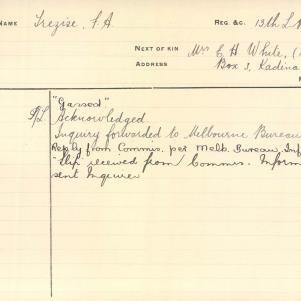 NAME Trezise, F.A. REG. &c. 13th L.
NEXT OF KIN Mrs E. H. White,
ADDRESS Box 3, Kadina
"Gassed"
Acknowledged
Inquiry forwarded to Melbourne Bureau
Reply from Commis. per Melb. Bureau. Inf
"Slip received from Commis. Inform
sent Inquirer